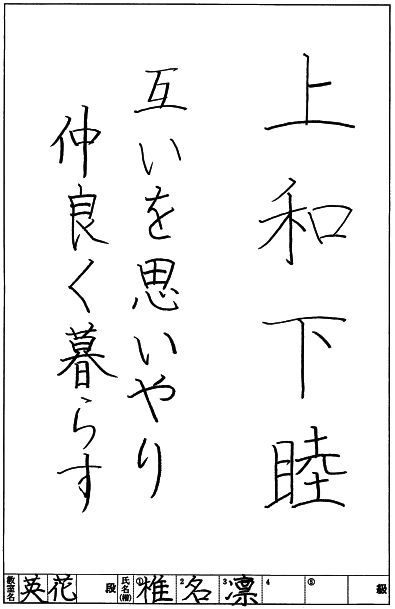 上和下睦
互いを思いやり
仲良く暮らす
教室名 英花 段 氏名(櫂) ①椎 2名 3凛 4 ⑤ 級